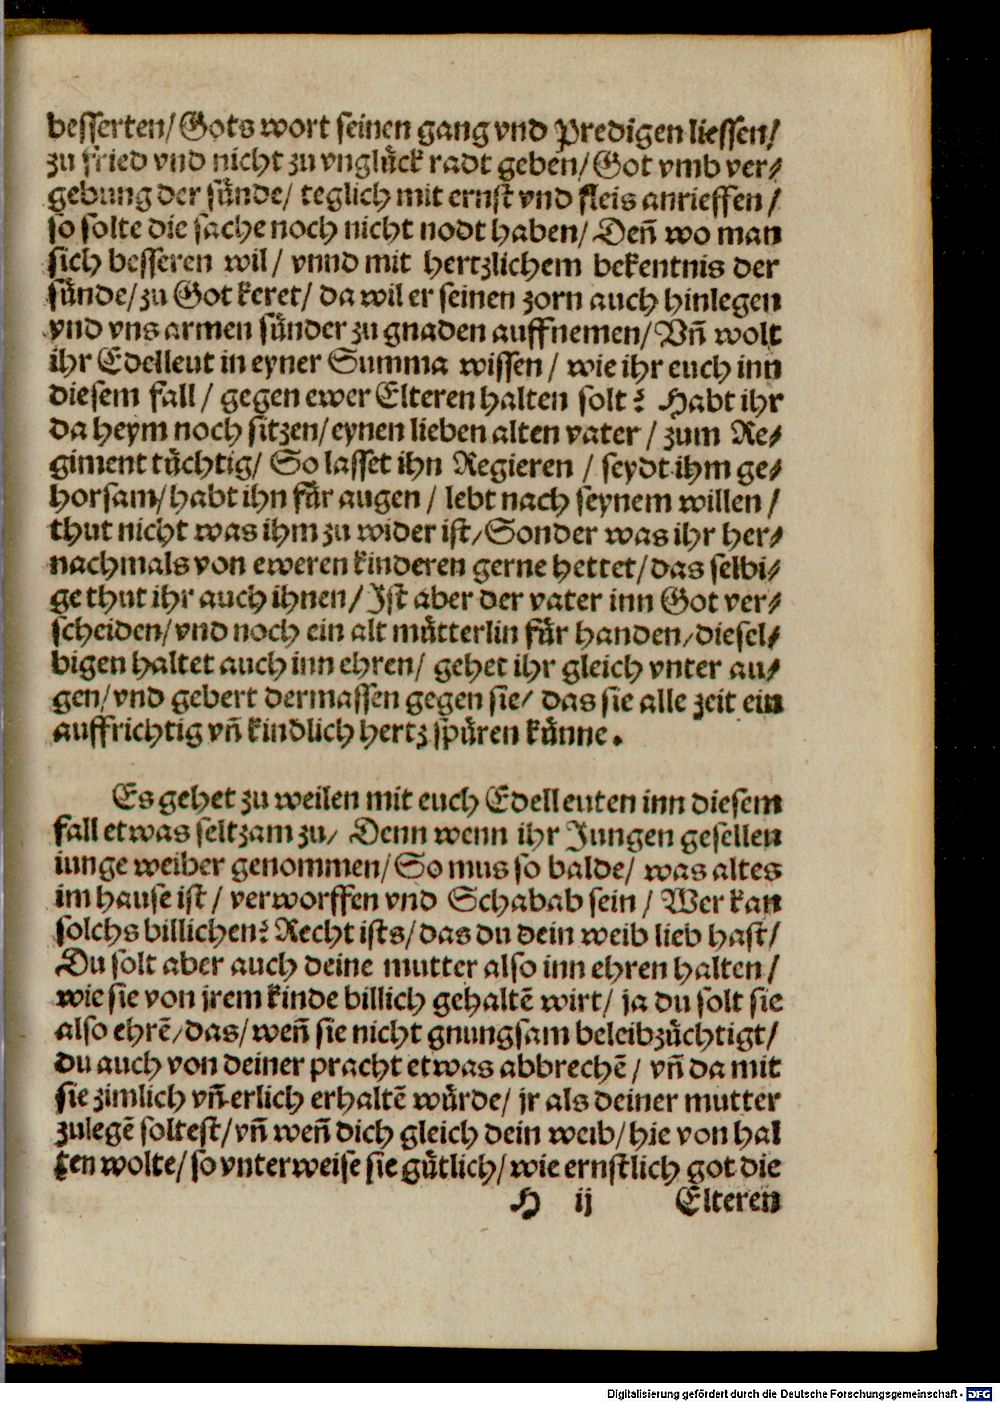 besserten/ Gots wort seinen gang vnd Predigen liessen/
zu fried vnd nicht zu vnglück radt geben/ Got vmb ver⸗
gebung der sünde/ teglich mit ernst vnd fleis anrieffen/
so solte die sache noch nicht nodt haben/ Deñ wo man
sich besseren wil/ vnnd mit hertzlichem bekentnis der
sünde/ zu Got keret/ da wil er seinen zorn auch hinlegen
vnd vns armen sünder zu gnaden auffnemen/ Vñ wolt
ihr Edelleut in eyner Summa wissen/ wie ihr euch inn
diesem fall/ gegen ewer Elteren halten solt? Habt ihr
da heym noch sitzen/ eynen lieben alten vater/ zum Re⸗
giment tüchtig/ So lasset ihn Regieren/ seydt ihm ge⸗
horsam/ habt ihn für augen/ lebt nach seynem willen/
thut nicht was ihm zu wider ist/ Sonder was ihr her⸗
nachmals von eweren kinderen gerne hettet/ das selbi⸗
ge thut ihr auch ihnen/ Ist aber der vater inn Got ver⸗
scheiden/ vnd noch ein alt mütterlin für handen/ diesel⸗
bigen haltet auch inn ehren/ gehet ihr gleich vnter au⸗
gen/ vnd gebert dermassen gegen sie/ das sie alle zeit ein
auffrichtig vñ kindlich hertz spüren künne.
Es gehet zu weilen mit euch Edelleuten inn diesem
fall etwas seltzam zu/ Denn wenn ihr Jungen gesellen
iunge weiber genommen/ So mus so balde/ was altes
im hause ist/ verworffen vnd Schabab sein/ Wer kan
solchs billichen? Recht ists/ das du dein weib lieb hast/
Du solt aber auch deine mutter also inn ehren halten/
wie sie von jrem kinde billich gehaltē wirt/ ja du solt sie
also ehrē/ das/ weñ sie nicht gnungsam beleibzüchtigt/
du auch von deiner pracht etwas abbrechē/ vñ da mit
sie zimlich vñ erlich erhaltē würde/ jr als deiner mutter
zulegē soltest/ vñ weñ dich gleich dein weib/ hie von hal
ten wolte/ so vnterweise sie gütlich/ wie ernstlich got die
H ij Elteren
Digitalisierung gefördert durch die Deutsche Forschungsgemeinschaft - DFG